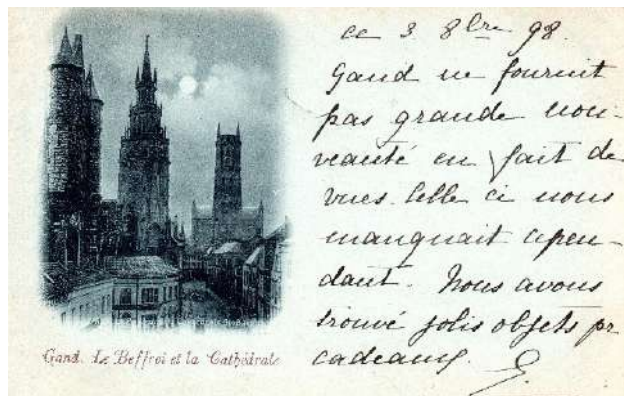 ce 3 8bre 98.
Gand ne fournit
pas grande nou-
veauté en fait de
vues. Celle ci nous
manquait cepen-
dant. Nous avons
trouvé jolis objets pr
cadeaux. G.
Gand. Le Beffroi et la Cathédrale